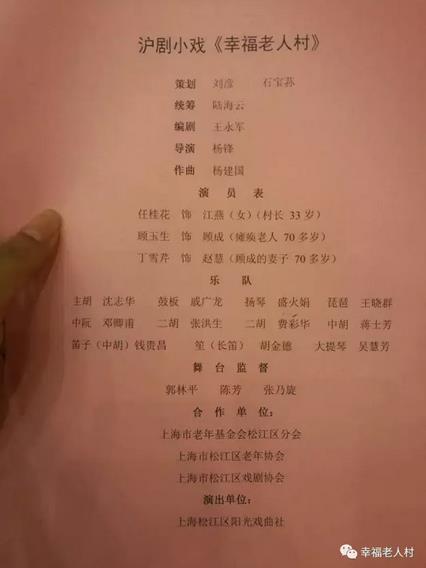 沪剧小戏《幸福老人村》
策划 刘彦 石宝荪
统筹 陆海云
编剧 王永军
导演 杨锋
作曲 杨建国
演员表
任桂花 饰 江燕（女）（村长 33岁）
顾玉生 饰 顾成（瘫痪老人 70多岁）
丁雪芹 饰 赵慧（顾成的妻子 70多岁）
乐队
主胡 沈志华 鼓板 戚广龙 扬琴 盛火娟 琵琶 王晓群
中阮 邓卿甫 二胡 张洪生 二胡 费彩华 中胡 蒋士芳
笛子（中胡）钱贵昌 笙（长笛）胡金德 大提琴 吴慧芳
舞台监督
郭林平 陈芳 张乃旋
合作单位：
上海市老年基金会松江区分会
上海市松江区老年协会
上海市松江区戏剧协会
演出单位：
上海松江区阳光戏曲社
幸福老人村